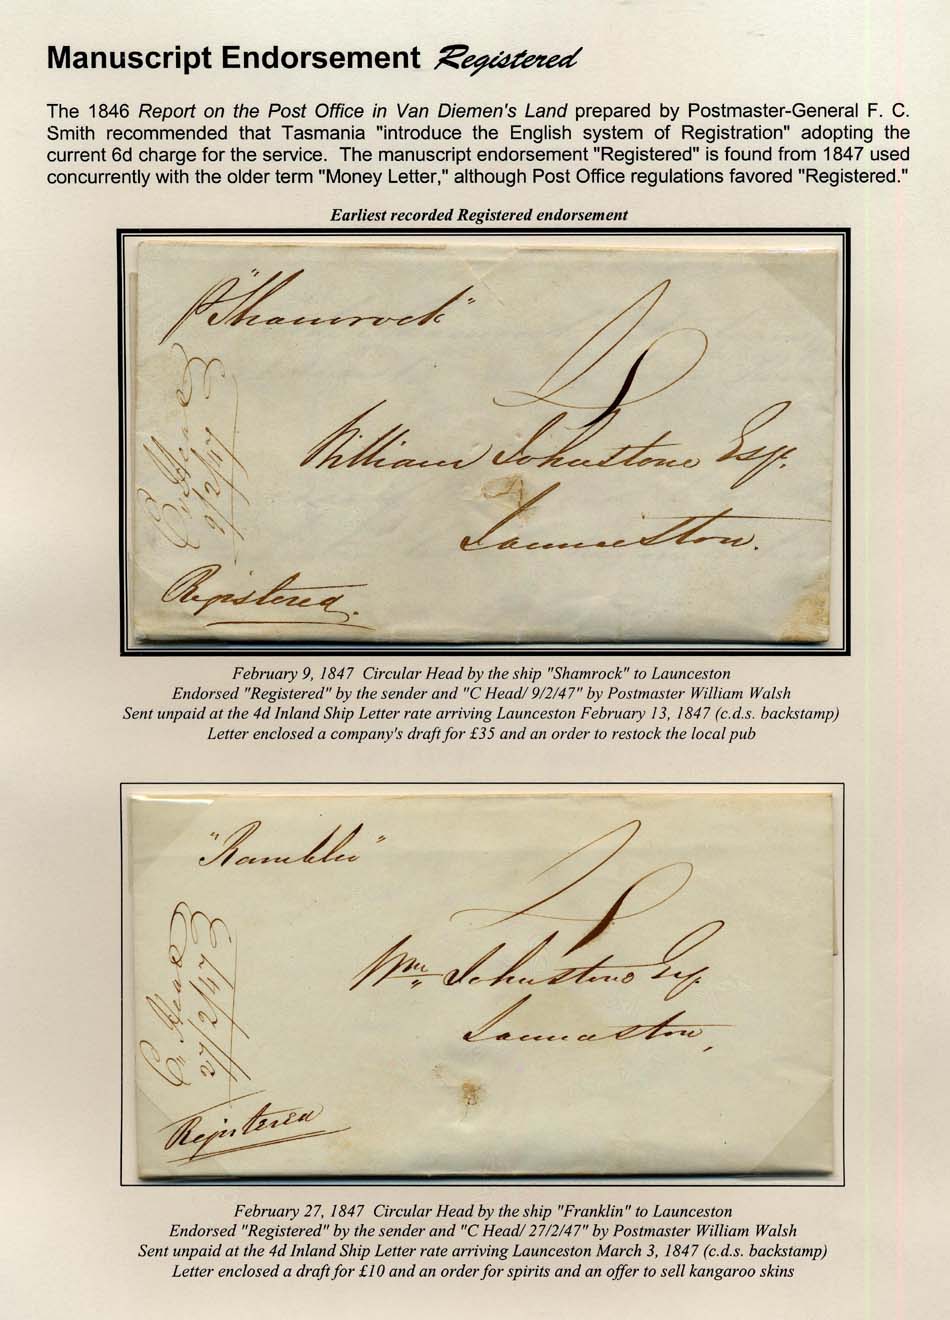 Manuscript Endorsement Registered
The 1846 Report on the Post Office in Van Diemen's Land prepared by Postmaster-General F. C.
Smith recommended that Tasmania "introduce the English system of Registration" adopting the
current 6d charge for the service. The manuscript endorsement "Registered" is found from 1847 used
concurrently with the older term "Money Letter," although Post Office regulations favored "Registered."
Earliest recorded Registered endorsement
"Shamrock"
C. Head
9/2/47
William Johnstone Esqr.
Launceston.
Registered.
February 9, 1847 Circular Head by the ship "Shamrock" to Launceston
Endorsed "Registered" by the sender and "C Head/ 9/2/47" by Postmaster William Walsh
Sent unpaid at the 4d Inland Ship Letter rate arriving Launceston February 13, 1847 (c.d.s. backstamp)
Letter enclosed a company's draft for £35 and an order to restock the local pub
"Rambler"
C. Head
27/2/47
Wm Johnstone Esq.
Launceston,
Registered
February 27, 1847 Circular Head by the ship "Franklin" to Launceston
Endorsed "Registered" by the sender and "C Head/ 27/2/47" by Postmaster William Walsh
Sent unpaid at the 4d Inland Ship Letter rate arriving Launceston March 3, 1847 (c.d.s. backstamp)
Letter enclosed a draft for £10 and an order for spirits and an offer to sell kangaroo skins